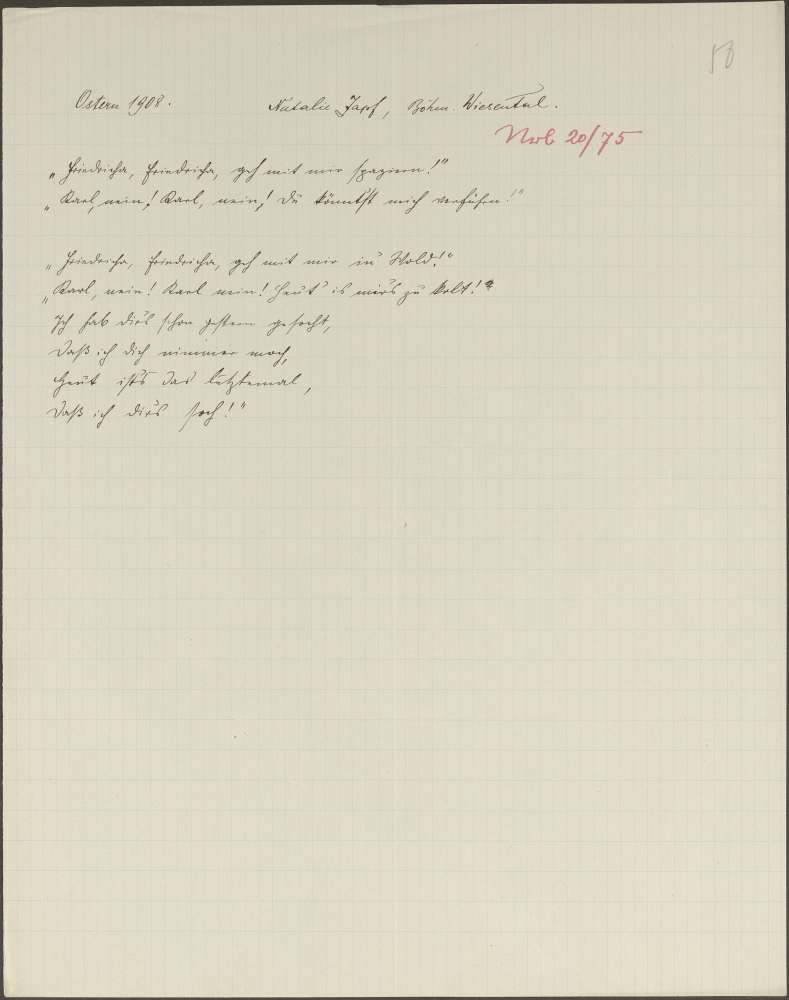 58
Ostern 1908. Natalie Japf, Böhm. Wiesental.
Nrb 20/75
„Friedricha, Friedricha, geh mit mir spaziern!“
„Karl, nein! Karl, nein! Du könntst mich verführn!“
„Friedricha, Friedricha, geh mit mir in Wold!“
„Karl, nein! Karl nein! Heut is mirs zu kolt!
Ich hab dirs schon gestern gesocht,
Daß ich dich nimmer moch,
Heut ists das letztemal,
Daß ich dirs soch!“